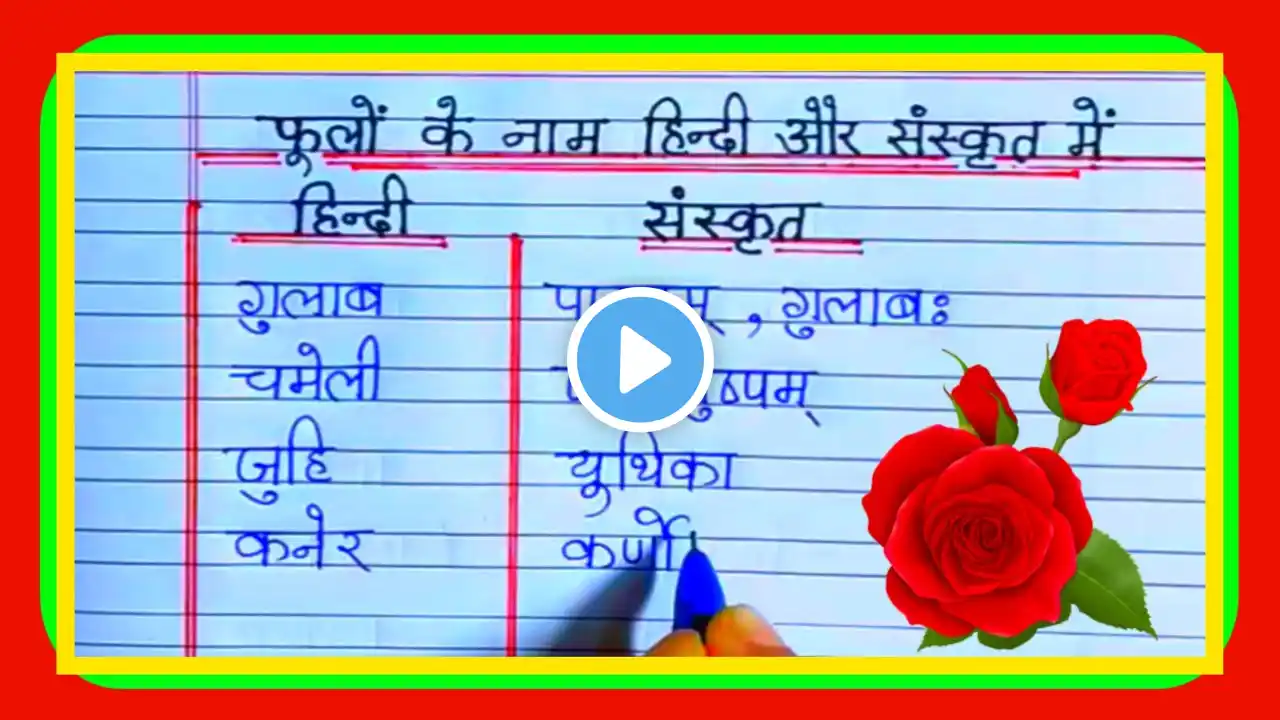 फूलों के नाम हिन्दी और संस्कृत में
हिन्दी संस्कृत
गुलाब , गुलाबः
चमेली
जुहि यूथिका
कनेर